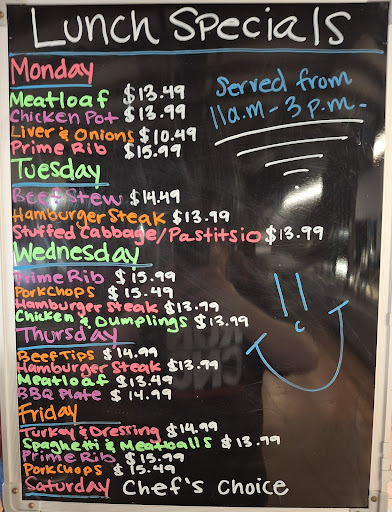 Lunch Specials
Monday
Served from
11a.m - 3 p.m.
Meatloaf $13.49
Chicken Pot $13.99
Liver & Onions $10.49
Prime Rib $15.99
Tuesday
Beef Stew $14.49
Hamburger Steak $13.99
Stuffed Cabbage/Pastitsio $13.99
Wednesday
Prime Rib $15.99
PorkChops $15.49
Hamburger Steak $13.99
Chicken & Dumplings $13.99
Thursday
Beef Tips $14.99
Hamburger Steak $13.99
Meatloaf $13.49
BBQ Plate $14.99
Friday
Turkey & Dressing $14.99
Spaghetti & Meatballs $13.99
Prime Rib $15.99
PorkChops $15.49
Saturday Chef's Choice